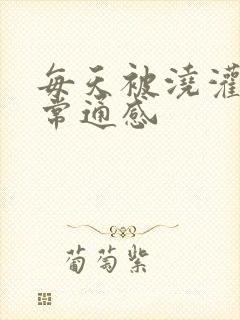 每天被浇灌
常通感
葡萄紫